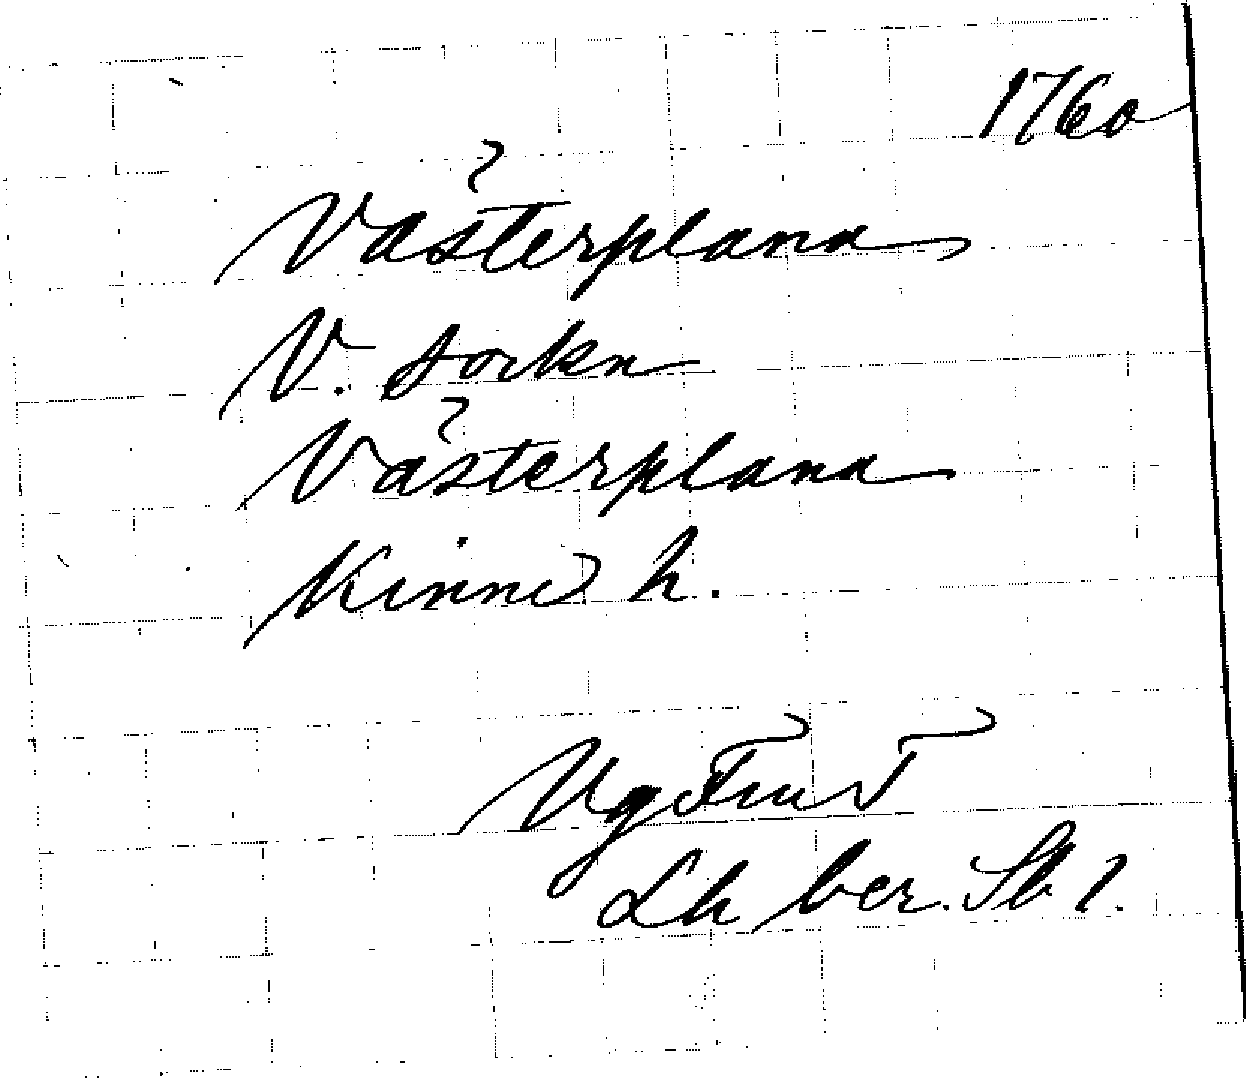 1760
Västerplana
V. sockn
Västerplana
Kinne h.
Lh ber. Sb 1.